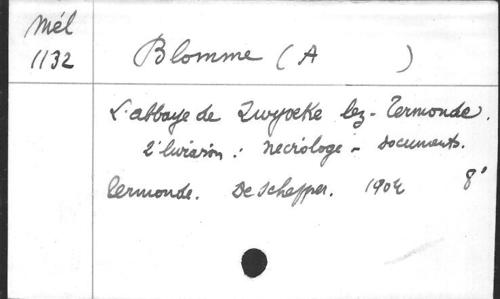 Mél
1132
Blomme (A )
L'abbaye de Zwyveke lez-Termonde.
2e livraison : Nécrologe - Documents.
Termonde. De Schepper. 1904 8°